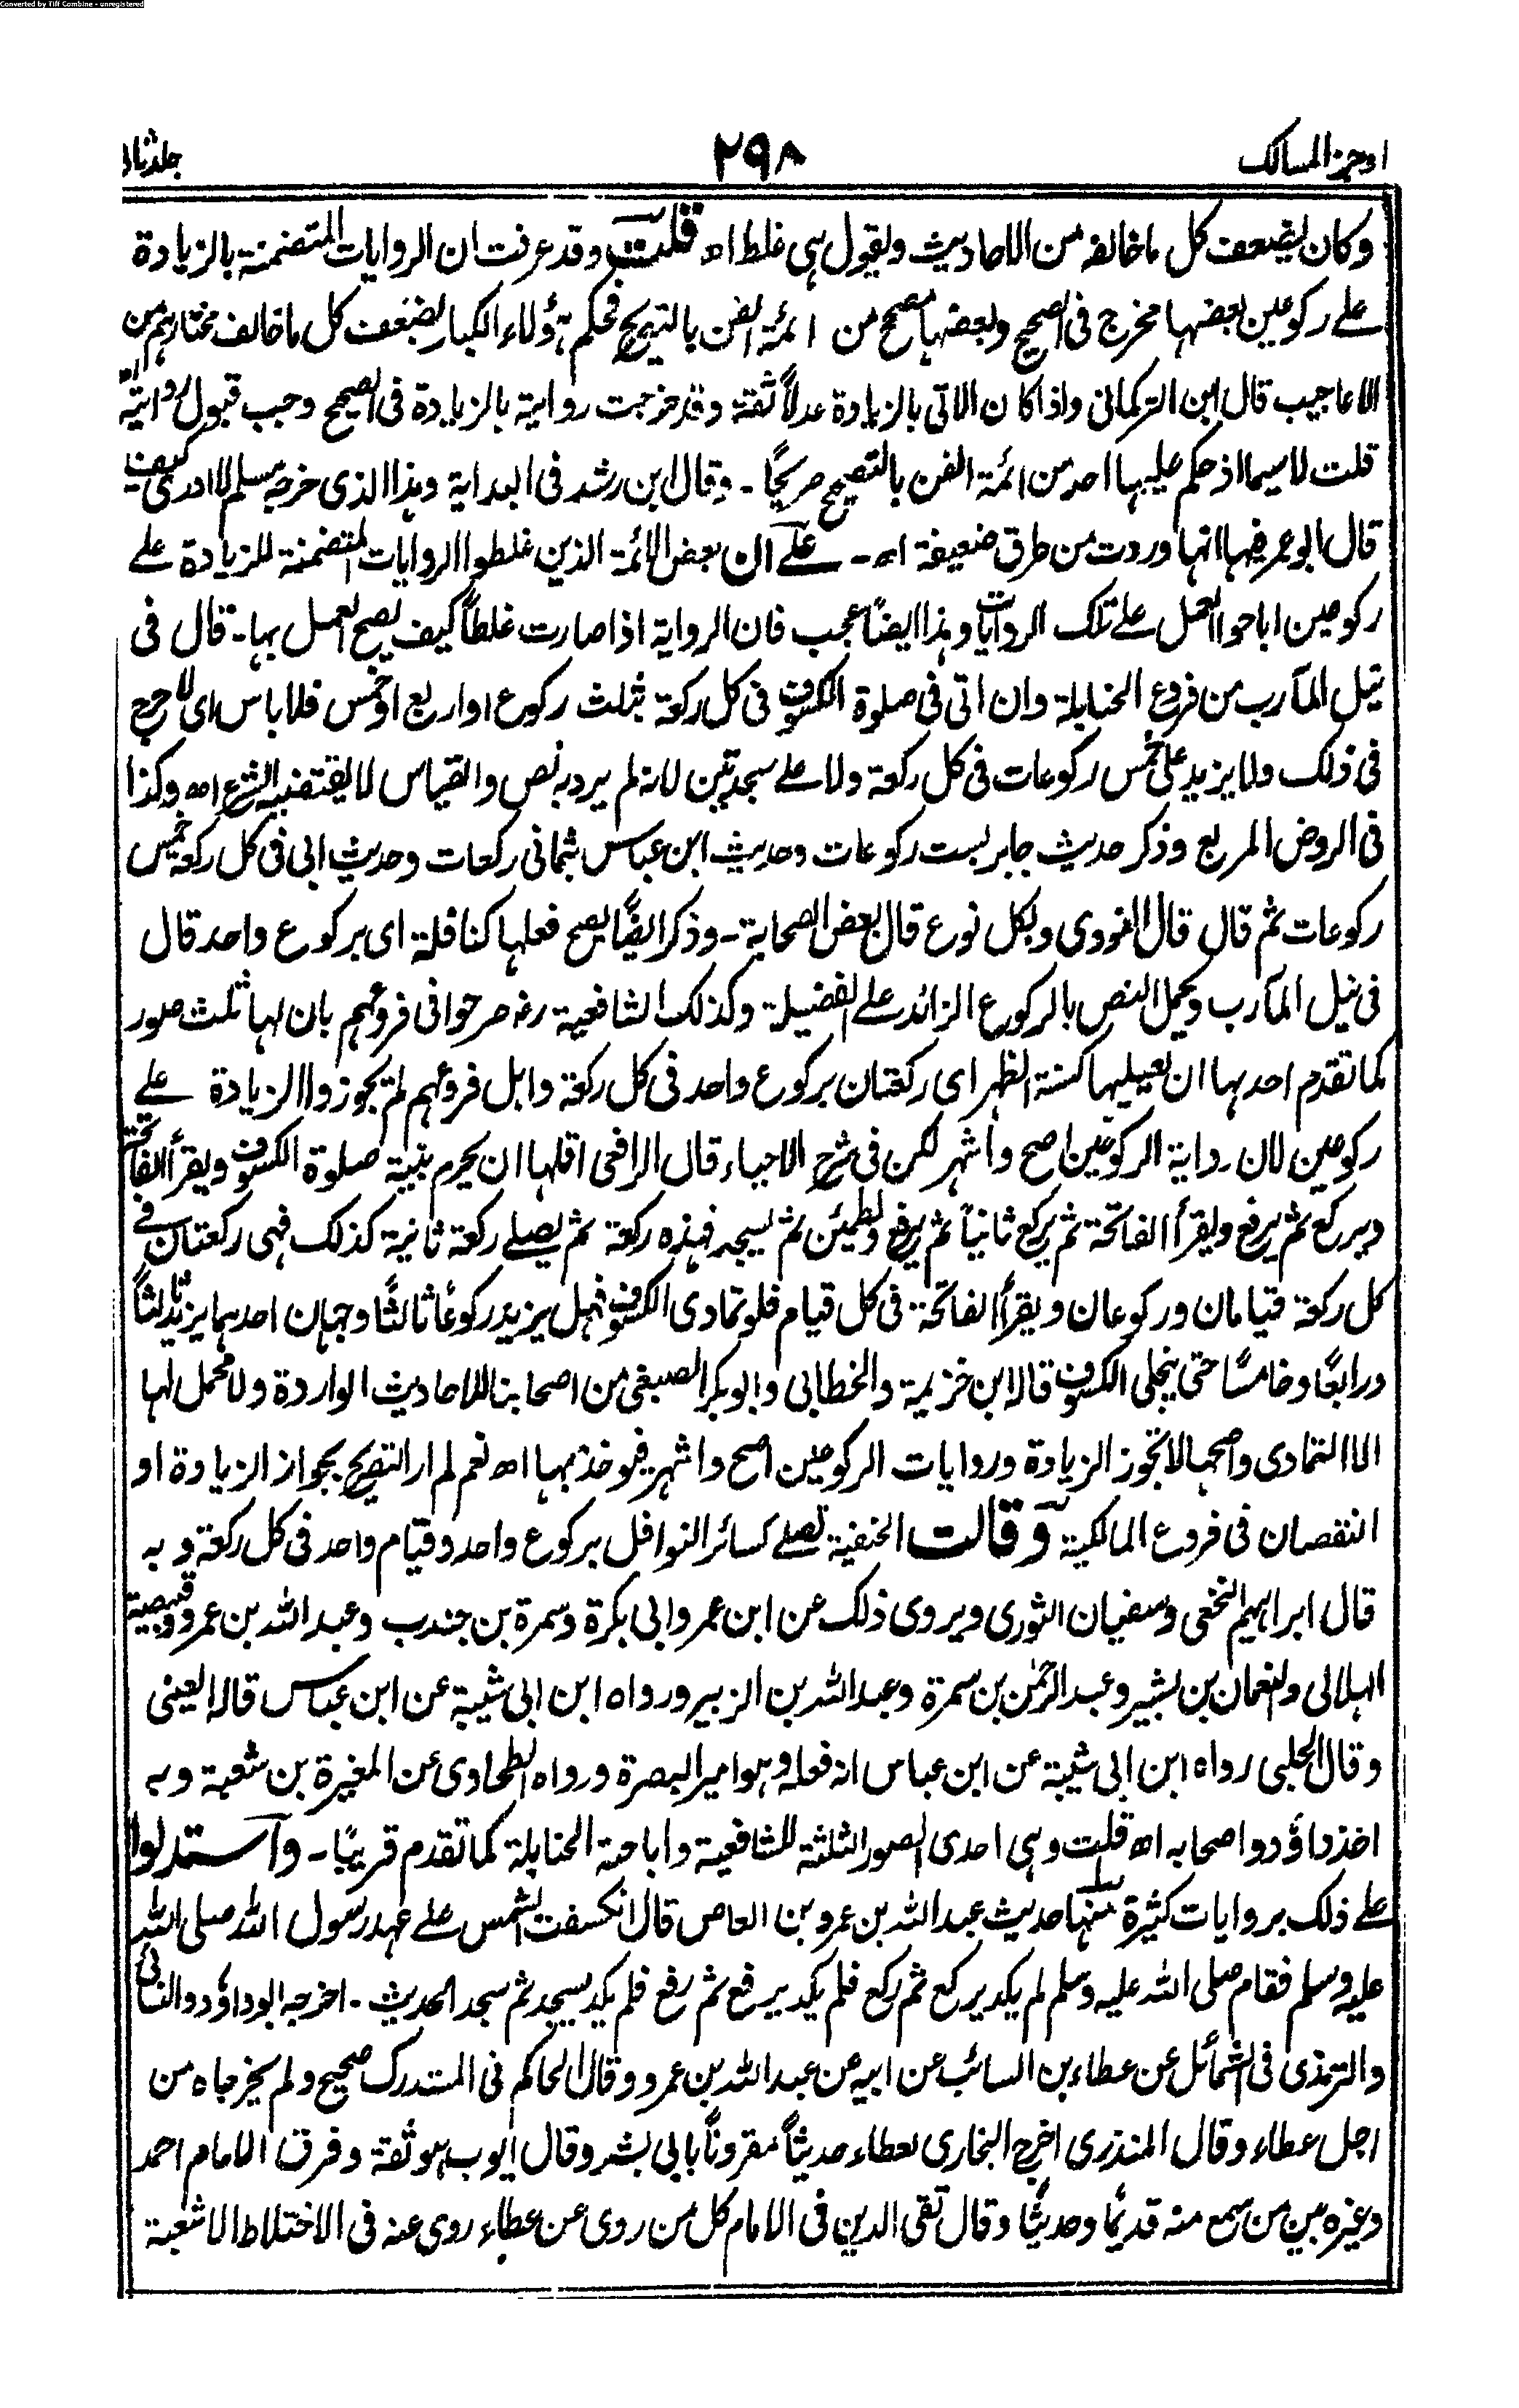 Converted by Tiff Combine - unregistered
اوجز المسالک
۲۹۸
جلد ثانی
وکان یضعف کل ما خالفہ من الاحادیث ویقول ہی غلط اھ قلت وقد عرفت ان الروایات المتضمنۃ بالزیادۃ
علے رکوعین بعضہا مخرج فی الصحیح وبعضہا صحح من ائمۃ الفن بالتصریح فحکم ہؤلاء الکبار بضعف کل ما خالف مختارہم من
الاعاجیب قال ابن الترکمانی واذا کان الاتی بالزیادۃ عدلاً ثقۃ وقد خرجت روایۃ بالزیادۃ فی الصحیح وجب قبول روایتہ اھ
قلت لا سیما اذ حکم علیہا احد من ائمۃ الفن بالتصحیح صریحًا ۔ وقال ابن رشد فی البدایۃ وہذا الذی خرجہ مسلم لا ادری کیف
قال ابو عمر فیہا انہا وردت من طرق ضعیفۃ اھ ۔ علے ان بعض الائمۃ الذین غلطوا الروایات المتضمنۃ للزیادۃ علے
رکوعین اباحوا العمل علے تلک الروایات وہذا ایضًا عجب فان الروایۃ اذا صارت غلطاً کیف یصح العمل بہا ۔ قال فی
نیل المآرب من فروع الحنابلۃ وان اتی فی صلوۃ الکسوف فی کل رکعۃ بثلث رکوع او اربع او خمس فلا باس ای لا حرج
فی ذلک ولا یزید علی خمس رکوعات فی کل رکعۃ ولا علے سجدتین لانہ لم یرد بہ نص والقیاس لا یقتضیہ الشرع اھ وکذا
فی الروض المربع وذکر حدیث جابر بست رکوعات وحدیث ابن عباس بثمانی رکعات وحدیث ابی فی کل رکعۃ خمس
رکوعات ثم قال قال النووی وبکل نوع قال بعض الصحابۃ ۔ وذکر ایضًا یصح فعلہا کنافلۃ ای برکوع واحد قال
فی نیل المآرب ویحمل النص بالرکوع الزائد علے الفضیلۃ وکذلک الشافعیۃ رہ صرحوا فی فروعہم بان لہا ثلث صور
کما تقدم احدہا ان یصلیہا کسنۃ الظہر ای رکعتان برکوع واحد فی کل رکعۃ واہل فروعہم لم یجوزوا الزیادۃ علے
رکوعین لان روایۃ الرکوعین اصح واشہر لکن فی شرح الاحیاء قال الرافعی اقلہا ان یحرم بنیۃ صلوۃ الکسوف ویقرأ الفاتحۃ
ویرکع ثم یرفع ویقرأ الفاتحۃ ثم یرکع ثانیاً ثم یرفع ویطمئن ثم یسجد فہذہ رکعۃ ثم یصلے رکعۃ ثانیۃ کذلک فہی رکعتان فے
کل رکعۃ قیامان ورکوعان ویقرأ الفاتحۃ فی کل قیام فلو تمادی الکسوف فہل یزید رکوعًا ثالثًا وجہان احدہما یزید ثالثًا
ورابعًا وخامسًا حتی ینجلی الکسوف قالہ ابن خزیمۃ والخطابی وابوبکر الصبغی من اصحابنا للاحادیث الواردۃ ولا محمل لہا
الا التمادی واصحہا لا تجوز الزیادۃ وروایات الرکوعین اصح واشہر فیوخذ بہا اھ نعم لم ار التصریح بجواز الزیادۃ او
النقصان فی فروع المالکیۃ وقالت الحنفیۃ تصلے کسائر النوافل برکوع واحد وقیام واحد فی کل رکعۃ وبہ
قال ابراہیم النخعی وسفیان الثوری ویروی ذلک عن ابن عمر وابی بکرۃ وسمرۃ بن جندب وعبد اللہ بن عمرو وقبیصۃ
الہلالی والنعمان بن بشیر وعبد الرحمٰن بن سمرۃ وعبد اللہ بن الزبیر ورواہ ابن ابی شیبۃ عن ابن عباس قالہ العینی
وقال الحلبی رواہ ابن ابی شیبۃ عن ابن عباس انہ فعلہ وہو امیر البصرۃ ورواہ الطحاوی عن المغیرۃ بن شعبۃ وبہ
اخذ داؤد واصحابہ اھ قلت وہی احدی الصور الثلثۃ للشافعیۃ واباحتہ الحنابلۃ کما تقدم قریبًا ۔ واستدلوا
علے ذلک بروایات کثیرۃ منہا حدیث عبد اللہ بن عمرو بن العاص قال انکسفت الشمس علے عہد رسول اللہ صلی اللہ
علیہ وسلم فقام صلی اللہ علیہ وسلم لم یکد یرکع ثم رکع فلم یکد یرفع ثم رفع فلم یکد یسجد ثم سجد الحدیث ۔ اخرجہ ابوداؤد والنسائی
والترمذی فی الشمائل عن عطاء بن السائب عن ابیہ عن عبد اللہ بن عمرو وقال الحاکم فی المستدرک صحیح ولم یخرجاہ من
اجل عطاء وقال المنذری اخرج البخاری لعطاء حدیثًا مقروناً بابی بشر وقال ایوب ہو ثقۃ وفرق الامام احمد
وغیرہ بین من سمع منہ قدیمًا وحدیثًا وقال تقی الدین فی الامام کل من روی عن عطاء روی عنہ فی الاختلاط الا شعبۃ